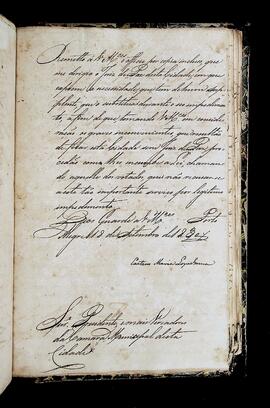 Remetto a V. M.ces o officio por copia incluso, que
me dirigio o Juiz de Paz desta Cidade, em que
expoem a necessidade que tem de hum Sup-
plente, que o substitua durante o seu impedimen-
to, a fim de que tomando V. M.ces em conside-
ração os graves inconvenientes que resultão
de ficar esta Cidade sem Juiz de Paz, pro-
cedão como lhes incumbe a Lei, chaman-
do aquelles dos votados, que não recusa-
a este tão importante serviço por legitimo
impedimento.
Deos Guarde a V. M.ces Porto
Alegre 18 de Setembro de 1832
Caetano Maria Lopes Gama
Snr.es Presidente, e mais Vereadores
da Camara Municipal desta
Cidade